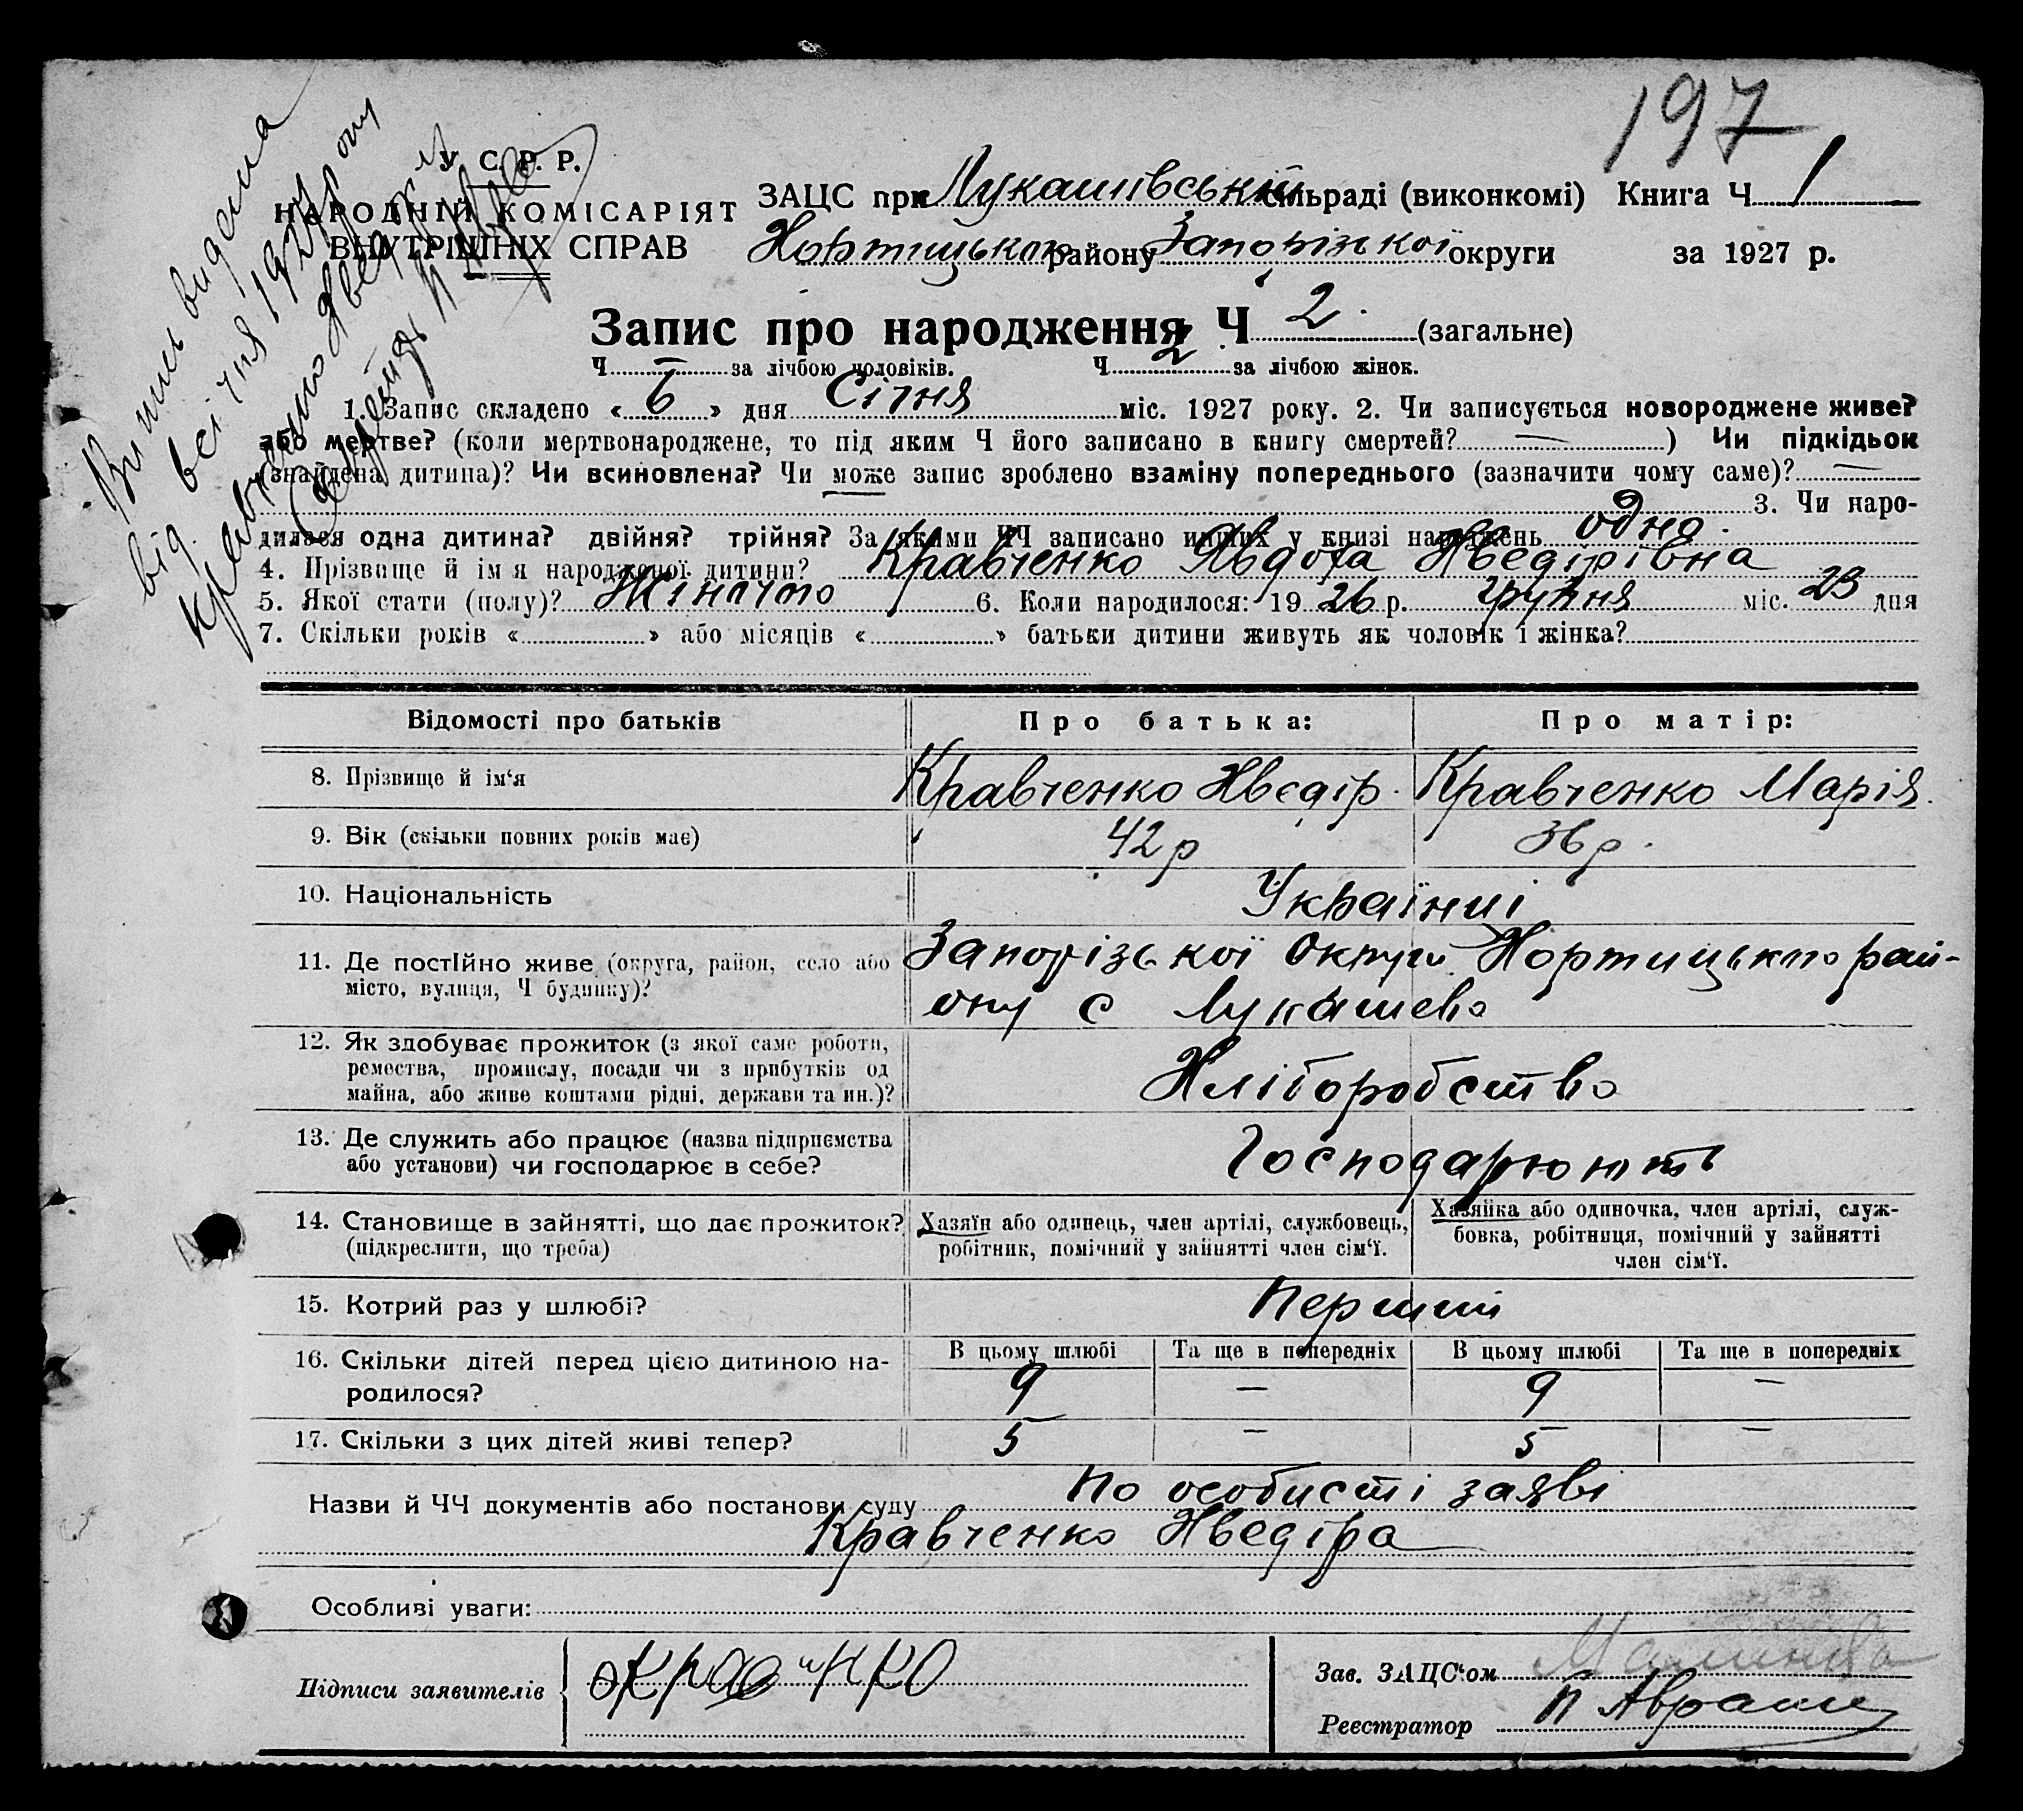 197
Випись видана
від 6 січня 1927 року
Кравченко Хведіру
У. С. Р. Р.
НАРОДНІЙ КОМІСАРІЯТ
ВНУТРІШНІХ СПРАВ
ЗАЦС при Лукашівській сільраді (виконкомі) Книга Ч. 1
Хортицького району Запорізької округи за 1927 р.
Запис про народження Ч. 2. (загальне)
Ч. — за лічбою чоловіків. Ч. 2. за лічбою жінок.
1. Запис складено « 6 » дня Січня міс. 1927 року. 2. Чи записується новороджене живе?
або мертве? (коли мертвонароджене, то під яким Ч його записано в книгу смертей? — ) Чи підкідьок
(знайдена дитина)? Чи всиновлена? Чи може запис зроблено взаміну попереднього (зазначити чому саме)? —
3. Чи наро-
дилася одна дитина? двійня? трійня? За якими ЧЧ записано инших у книзі народжень одно.
4. Прізвище й ім я народженої дитини? Кравченко Явдоха Хведірівна
5. Якої стати (полу)? Жіночого 6. Коли народилося: 19 26 р. грудня міс. 23 дня
7. Скільки років « » або місяців « » батьки дитини живуть як чоловік і жінка?
Відомості про батьків Про батька: Про матір:
8. Прізвище й ім‘я Кравченко Хведір. Кравченко Марія.
9. Вік (скільки повних років має) 42 р 36 р.
10. Національність Українці
11. Де постІйно живе (округа, район, село або Запорізької Округи Хортицького рай-
місто, вулиця, Ч будинку)? ону с Лукашево
12. Як здобуває прожиток (з якої саме роботи,
ремества, промислу, посади чи з прибутків од Хліборобство
майна, або живе коштами рідні, держави та ин.)?
13. Де служить або працює (назва підприємства Господарюють
або установи) чи господарює в себе?
14. Становище в зайнятті, що дає прожиток? Хазяїн або одинець, член артілі, службовець, Хазяйка або одиночка, член артілі, служ-
(підкреслити, що треба) робітник, помічний у зайнятті член сім‘ї. бовка, робітниця, помічний у зайнятті
член сім‘ї.
15. Котрий раз у шлюбі? Перший
16. Скільки дітей перед цією дитиною на- В цьому шлюбі Та ще в попередніх В цьому шлюбі Та ще в попередніх
родилося? 9 — 9 —
17. Скільки з цих дітей живі тепер? 5 — 5 —
Назви й ЧЧ документів або постанови суду По особисті заяві
Кравченко Хведіра
Особливі уваги:
Підписи заявителів
Зав. ЗАЦС‘ом
Реєстратор П